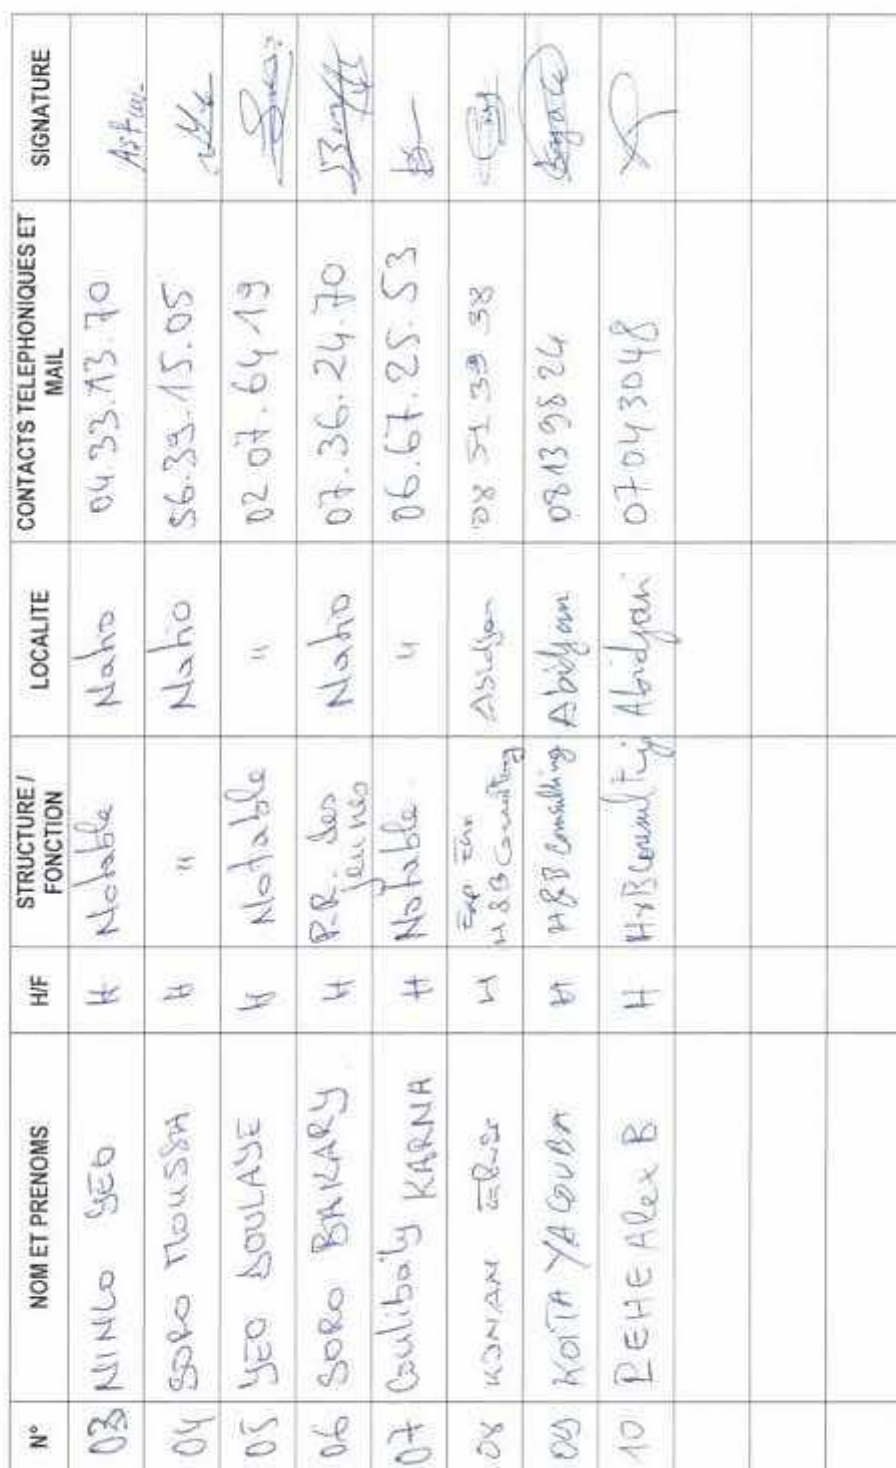 N° NOM ET PRENOMS H/F STRUCTURE / FONCTION LOCALITE CONTACTS TELEPHONIQUES ET MAIL SIGNATURE
03 NINLO YEO H Notable Natio 04.33.13.70
04 SORO MOUSSA H " Natio 56.39.15.05
05 YEO DOULAYE H Notable " 02.07.64.19
06 SORO BAKARY H P.R. des jeunes Natio 07.36.24.70
07 Coulibaly KARNA H Notable " 06.67.25.53
08 KONAN H Exp H&B Consulting Abidjan 08 51 39 38
09 KOITA YAGOUBA H H&B Consulting Abidjan 08139824
10 PEHE Alex B H H&B Consulting Abidjan 07043048